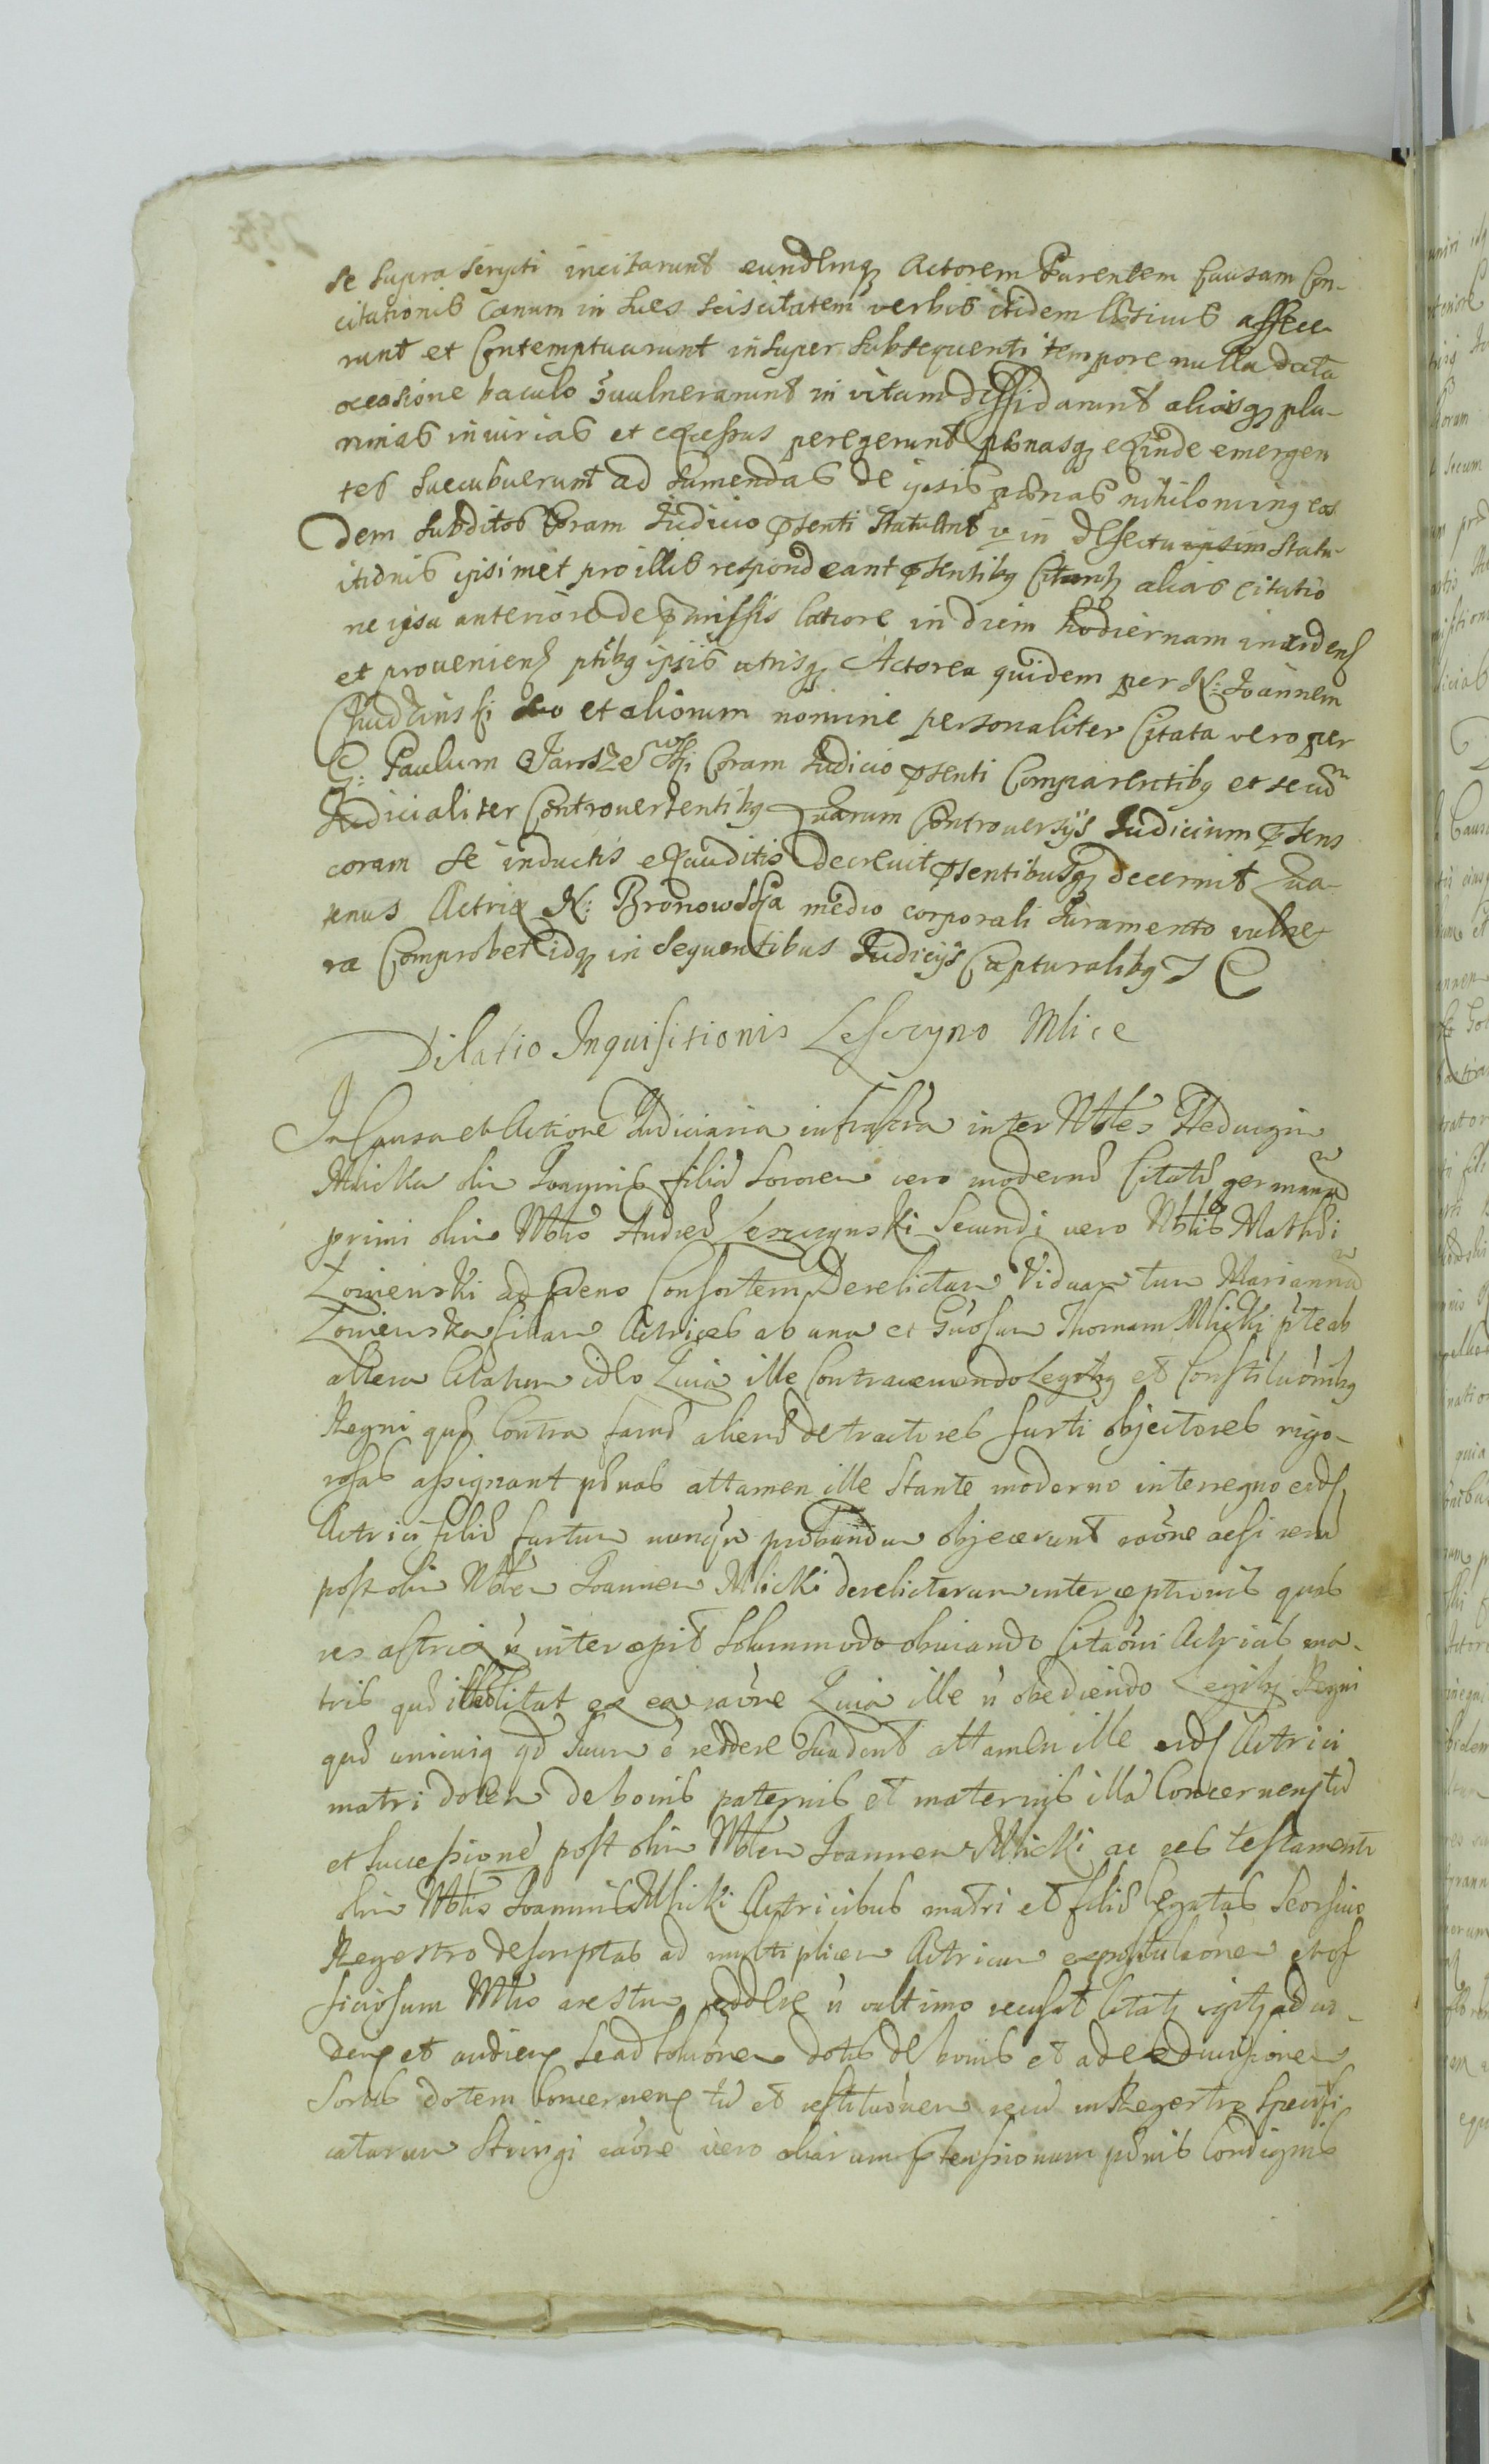 se supra scripti incitarunt eundemq Actorem Parentem Causam Con-
citationis Canum in sues sciscitatem verbis itidem læsivis affece-
runt et Contemptuarunt insuper subsequenti tempore nulla data
occasione baculo vulnerarunt in vitam diffidarunt aliasq plu-
rimas iniurias et excessus peregerunt pænasq exinde emergen
tes succubuerunt ad sumendas de ipsis pænas nihiloming eos
dem subditos Coram Judicio pñsenti statuant in defectu statu-
itionis ipsimet pro illis respondeant pñsentibq alias citatio
ne ipsa anteriore de præmissis latiore in diem hodiernam inciden
et provenien ptibq ipsis utrisq Actorea quidem per N: Joannem
suo et aliorum nomine personaliter Citata vero per
G: Paulum Jaroszewski Coram Judicio pñsenti Comparentibq et secum
Judicialiter Controvertentibq Quarum Controversijs Judicium pñsens
coram se inductis exauditis decrevit pñsentibusq decernit Qua-
tenus Actrix N: Bronowska medio corporali Juramento vulne-
ra Comprobet idq in sequentibus Judicijs Capturalibq
Dilatio Inquisitionis Lesczyno Mlice
In Causa et Actione Judiciaria infrascra inter Nbles Hedvigin
Mlicka olim Joannis filia sororem vero moderni Citati germana
primi olim Nblis Andreæ Leszczynski Secundi vero Nblis Mathæi
Lomienski Consortem Derelictam Viduam tum Marianna
Lomienska filiam Actrices ab una et Gñosum Thomam Mlicki pte ab
altera Citatum ideo Quia ille Contraveniendo Legibq et Constituõnibq
Regni quæ Contra famæ alienæ detractores furti objectores rigo-
rosas assignant pænas attamen ille Stante moderno interregno
Actricis filiæ furtum nunqm probandum objecerunt raõne acsi rerum
post olim Nblem Joannem Mlicki derelictarum interceptionis quas
res actrix ñ intercepit solummodo obviando Citaõni Actricis ma-
tris quæ ex ea raõne Quia ille ñ obediendo Legibq Regni
quæ unicuiq qd suum é reddere suadent attamen ille Actrici
matri dotem de bonis paternis et maternis illa Concernen tum
et successione post olim Nblem Joannem Mlicki ac res testamento
olim Nblis Joannis Mlicki Actricibus matri et filiæ legatas seorsivo
Regestro descriptas ad multiplicem Actricum expostulaõnem et of
ficiosum Nblis arestum reddere ñ vult imo recusat ad vi-
den et audien se ad soluõnem dotis de bonis et ad exdivisionem
sortis dotem Concernen tum et restituõnem rerum in Regestro Specifi
catarum Stringi raõne vero aliarum ptensionum pænis Condignis